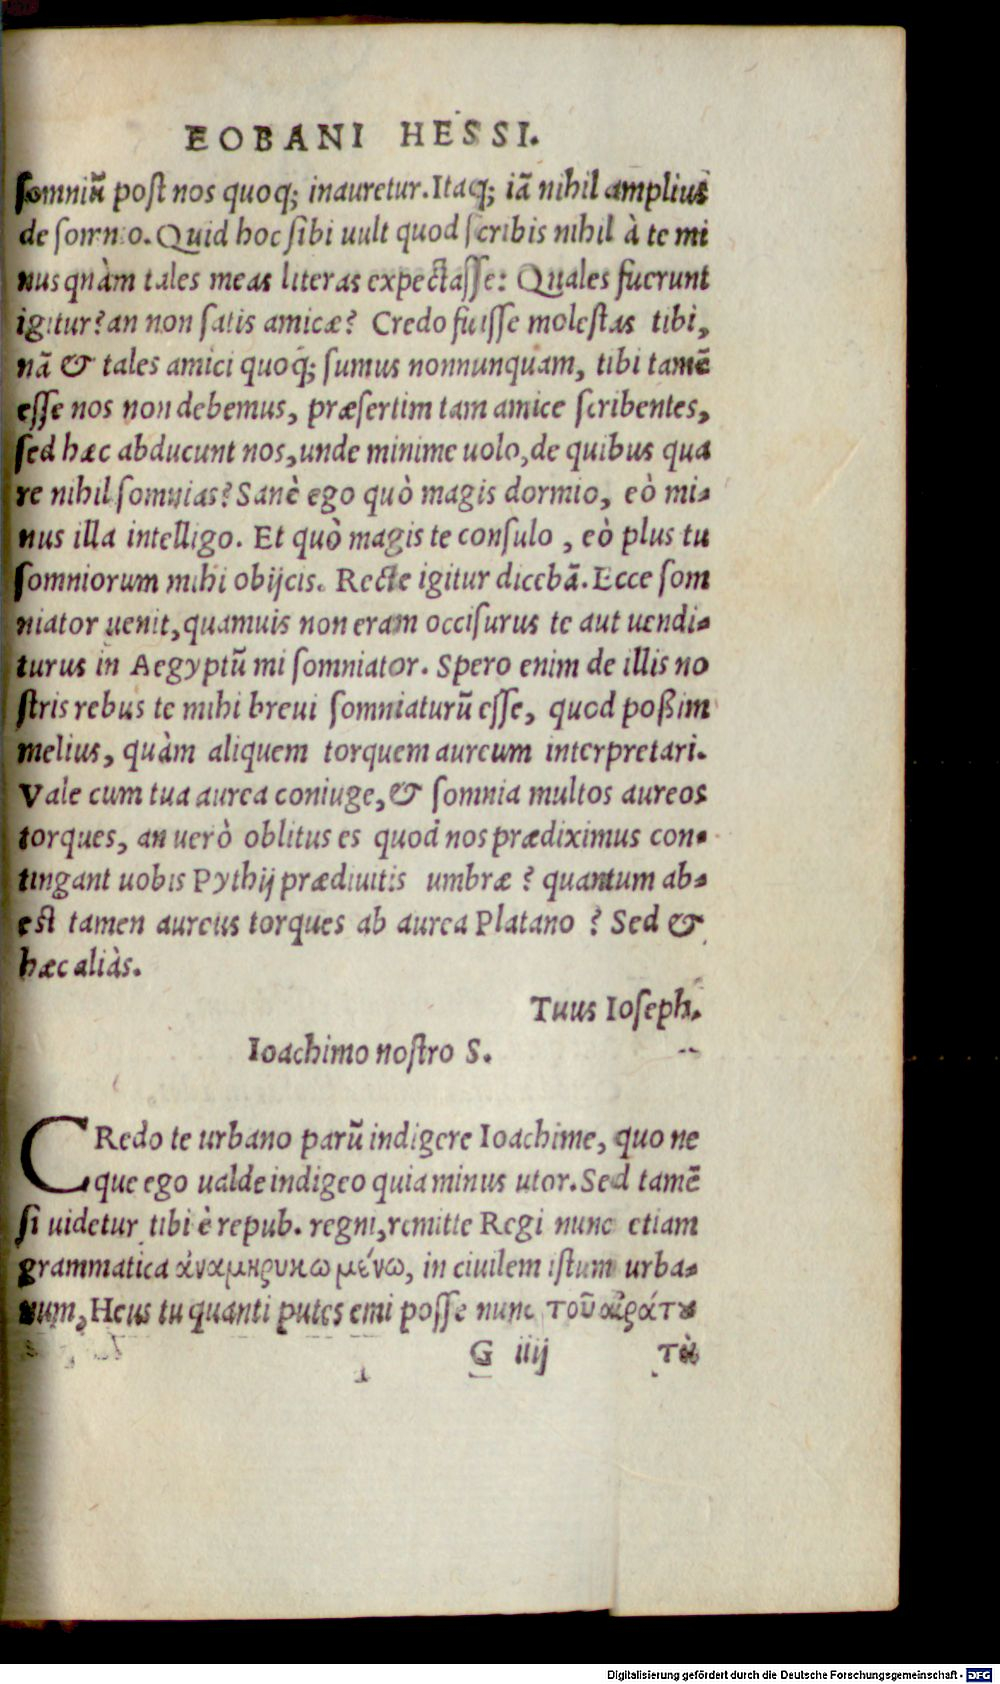 EOBANI HESSI.
ſomniũ poſt nos quoq; inauretur. Itaq; iã nihil amplius
de ſomno. Quid hoc ſibi uult quod ſcribis nihil à te mi
nus quàm tales meas literas expectaſſe: Quales fuerunt
igitur? an non ſatis amicæ? Credo fuiſſe moleſtas tibi,
nã & tales amici quoq; ſumus nonnunquam, tibi tamẽ
eſſe nos non debemus, præſertim tam amice ſcribentes,
ſed hæc abducunt nos, unde minime uolo, de quibus qua
re nihil ſomnias? Sanè ego quò magis dormio, eò mi-
nus illa intelligo. Et quò magis te conſulo , eò plus tu
ſomniorum mihi obijcis. Recte igitur dicebã. Ecce ſom
niator uenit, quamuis non eram occiſurus te aut uendi-
turus in Aegyptũ mi ſomniator. Spero enim de illis no
ſtris rebus te mihi breui ſomniaturũ eſſe, quod poßim
melius, quàm aliquem torquem aureum interpretari.
Vale cum tua aurea coniuge, & ſomnia multos aureos
torques, an uerò oblitus es quod nos prædiximus con-
tingant uobis Pythij prædiuitis umbræ ? quantum ab-
eſt tamen aureus torques ab aurea Platano ? Sed &
hæc aliàs.
Tuus Ioſeph.
Ioachimo noſtro S.
CRedo te urbano parũ indigere Ioachime, quo ne
que ego ualde indigeo quia minus utor. Sed tamẽ
ſi uidetur tibi è repub. regni, remitte Regi nunc etiam
grammatica ἀναμηρυκωμένω, in ciuilem iſtum urba-
num, Heus tu quanti putes emi poſſe nunc τοῦ
G iiij
Digitalisierung gefördert durch die Deutsche Forschungsgemeinschaft - DFG